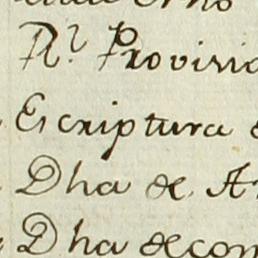 Rl. Provisio
Escriptura
Dha de A
Dha decon